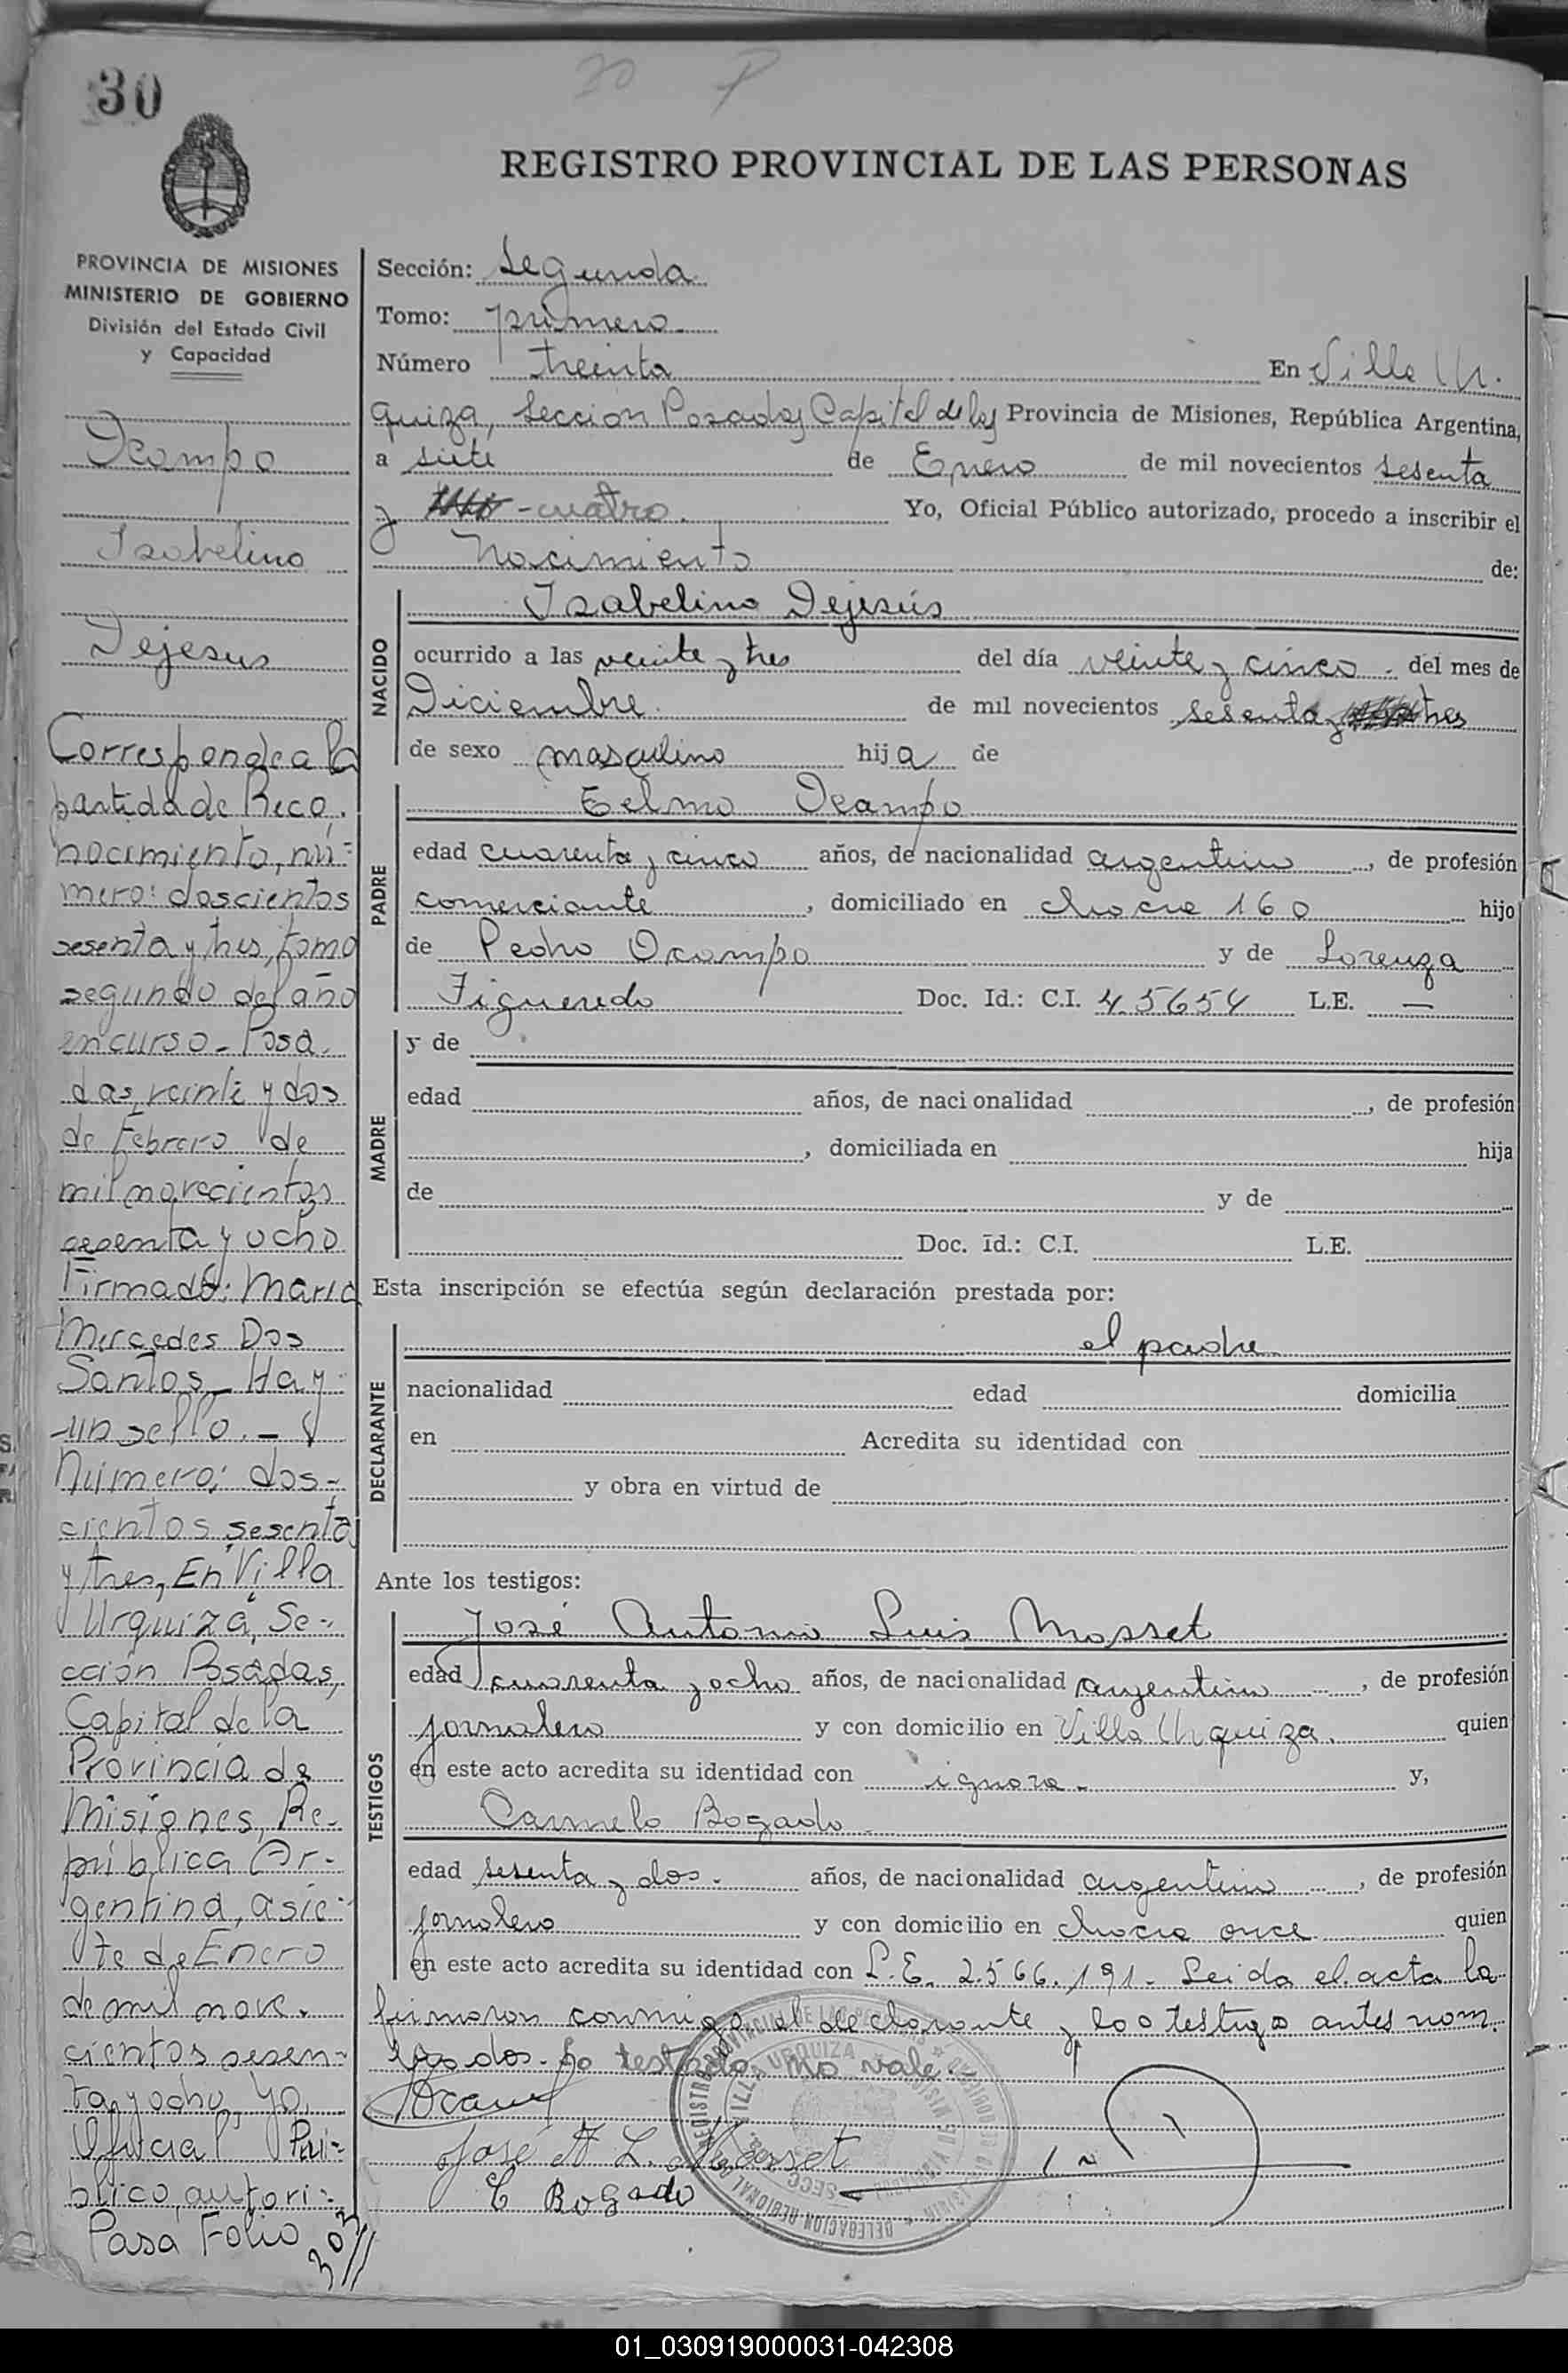 30
30 P
REGISTRO PROVINCIAL DE LAS PERSONAS
PROVINCIA DE MISIONES
MINISTERIO DE GOBIERNO
División del Estado Civil
y Capacidad
Ocampo
Isabelino
Dejesus
Corresponde a la
partida de Reco.
nocimiento, nú=
mero: doscientos
sesenta y tres, tomo
segundo del año
en curso - Posa-
das, veinte y dos
de Febrero de
mil novecientos
sesenta y ocho
Firmado: Maria
Mercedes Dos
Santos - Hay
un sello. -
Número: dos-
cientos sesenta
y tres, En Villa
Urquiza, Se-
cción Posadas,
Capital de la
Provincia de
Misiones, Re-
pública Ar-
gentina, a sie-
te de Enero
de mil nove-
cientos sesen-
ta y ocho, Yo,
Oficial Pú-
blico, autori-
Pasa Folio 303//
Sección: Segunda
Tomo: primero
Número treinta En Villa Ur.
quiza, Sección Posadas Capital de la Provincia de Misiones, República Argentina,
a siete de Enero de mil novecientos sesenta
y -cuatro. Yo, Oficial Público autorizado, procedo a inscribir el
Nacimiento de:
NACIDO
Isabelino Dejesús
ocurrido a las veinte y tres del día veinte y cinco del mes de
Diciembre de mil novecientos sesenta y tres
de sexo masculino hija de
PADRE
Telmo Ocampo
edad cuarenta y cinco años, de nacionalidad argentino, de profesión
comerciante, domiciliado en chacra 160 hijo
de Pedro Ocampo y de Lorenza
Figueredo Doc. Id.: C.I. 45654 L.E. —
MADRE
y de
edad años, de nacionalidad , de profesión
, domiciliada en hija
de y de
Doc. Id.: C.I. L.E.
Esta inscripción se efectúa según declaración prestada por:
DECLARANTE
el padre
nacionalidad edad domicilia
en Acredita su identidad con
y obra en virtud de
Ante los testigos:
TESTIGOS
José Antonio Luis Mosset
edad cuarenta y ocho años, de nacionalidad argentino, de profesión
jornalero y con domicilio en Villa Urquiza. quien
en este acto acredita su identidad con ignora - y,
Carmelo Bogado
edad sesenta y dos. años, de nacionalidad argentino, de profesión
jornalero y con domicilio en chacra once quien
en este acto acredita su identidad con L.E. 2.566.191 - Leida el acta la
firmaron conmigo el declarante y los testigos antes nom.
brados. Lo testado: no vale.
Ocampo
José A L. Mosset
C Bogado
VILLA URQUIZA
DELEGACION REGIONAL
01_030919000031-042308